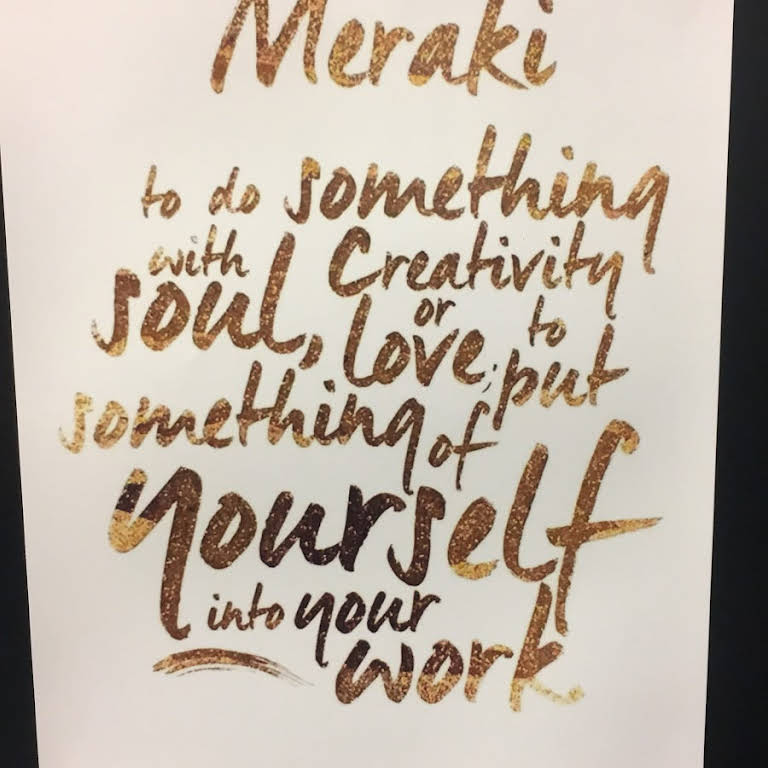 Meraki
to do something
with Creativity
soul, or love; to put
something of
yourself
into your
work